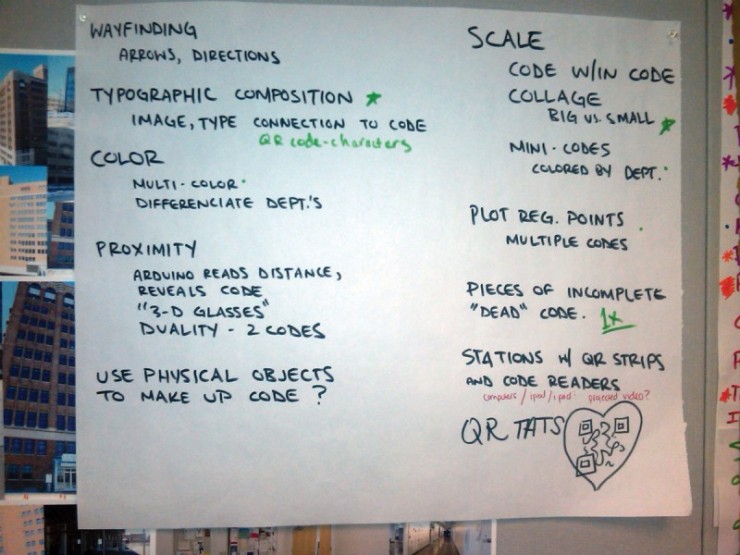 WAYFINDING
ARROWS, DIRECTIONS
TYPOGRAPHIC COMPOSITION
IMAGE, TYPE CONNECTION TO CODE
QR code-characters
COLOR
MULTI-COLOR
DIFFERENCIATE DEPT.'S
PROXIMITY
ARDUINO READS DISTANCE,
REVEALS CODE
"3-D GLASSES"
DUALITY - 2 CODES
USE PHYSICAL OBJECTS
TO MAKE UP CODE ?
SCALE
CODE W/IN CODE
COLLAGE
BIG VS. SMALL
MINI-CODES
COLORED BY DEPT.
PLOT REG. POINTS
MULTIPLE CODES
PIECES OF INCOMPLETE
"DEAD" CODE. 1x
STATIONS W/ QR STRIPS
AND CODE READERS
computers / ipod / ipad video?
QR TATS